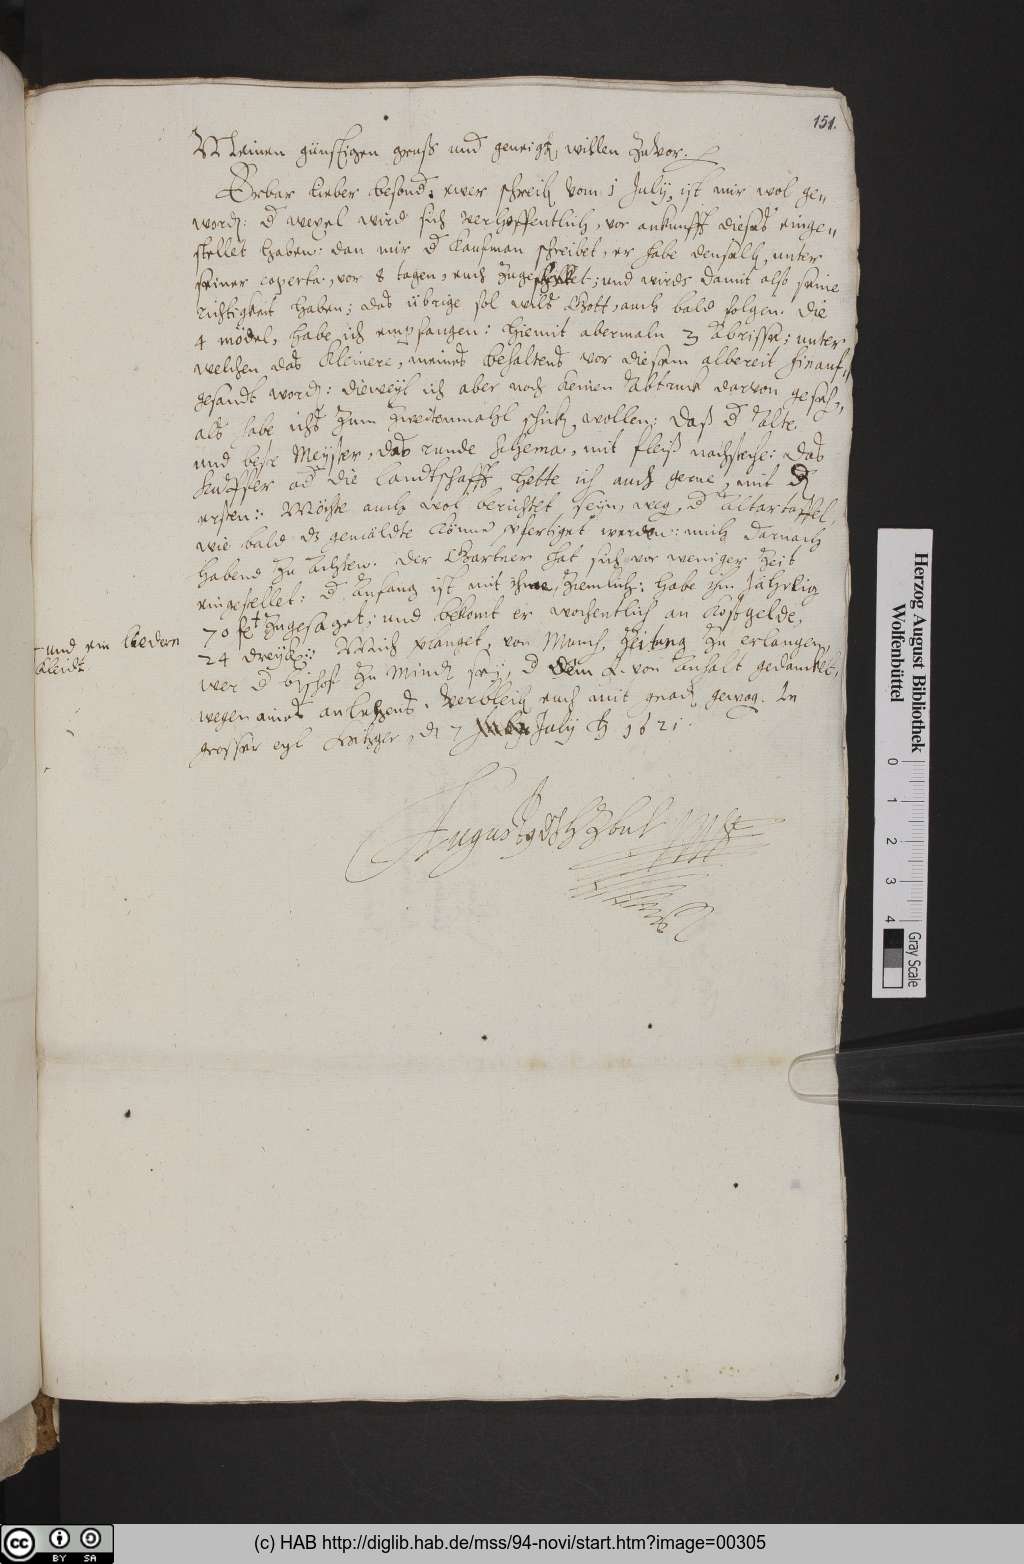 151.
Meinen günstigen gruss und geneigt. willen zuvor.
Erbar lieber besond. ewer schreib. vom 1 July, ist mir wol ge„
word.: d wexel wird sich verhoffentlich, vor ankunft dieses einge„
stellet haben: dan mir d Kaufman schreibet, er habe denselb. unter
seiner coperta, vor 8 tagen, euch zugeschicket; und wirds damit also seine
richtigkeit haben; das übrige sol wils Gott, auch bald folgen. Die
4 mödel, habe ich empfangen: hiemit abermaln 3 abrisse; unter
welchen das kleinere, meines behaltens vor diesem albereit hinauf„
gesandt word.: dieweyl ich aber noch keinen abtruk darvon geseh„
als habe ichs zum zweitenmahl schick. wollen: daß d alte
und beste Meyster, das runde schema, mit fleiß nachsteche: das
od die landtschafft hette ich auch gerne, mit d
ersten: Möchte auch wol berichtet seyn, weg. d altartaffel,
wie bald dz gemälde könne verfertiget werden: mich darnach
habend zu achten. Der Gartner hat sich vor weniger zeit
eingestellet: d anfang ist mit ihme, ziemlich: habe ihm jährlig
70 zugesaget; und bekomt er wochentlich an kostgelde,
- und ein kleden
kleidt
24 dreyer: Mich verlanget, von zeitung zu erlangen,
wer d byschof zu Mind. sey, d dem F. von Anhalt gedancket,
wegen eines anlehens. Verbleib euch mit gnad. gewog. In
grosser eyl Hitzger, dz 7 July 1621.
Augustus d J H Z B u L
Herzog August Bibliothek
Wolfenbüttel
0 1 2 3 4
Gray Scale
cc BY SA
(c) HAB http://diglib.hab.de/mss/94-novi/start.htm?image=00305